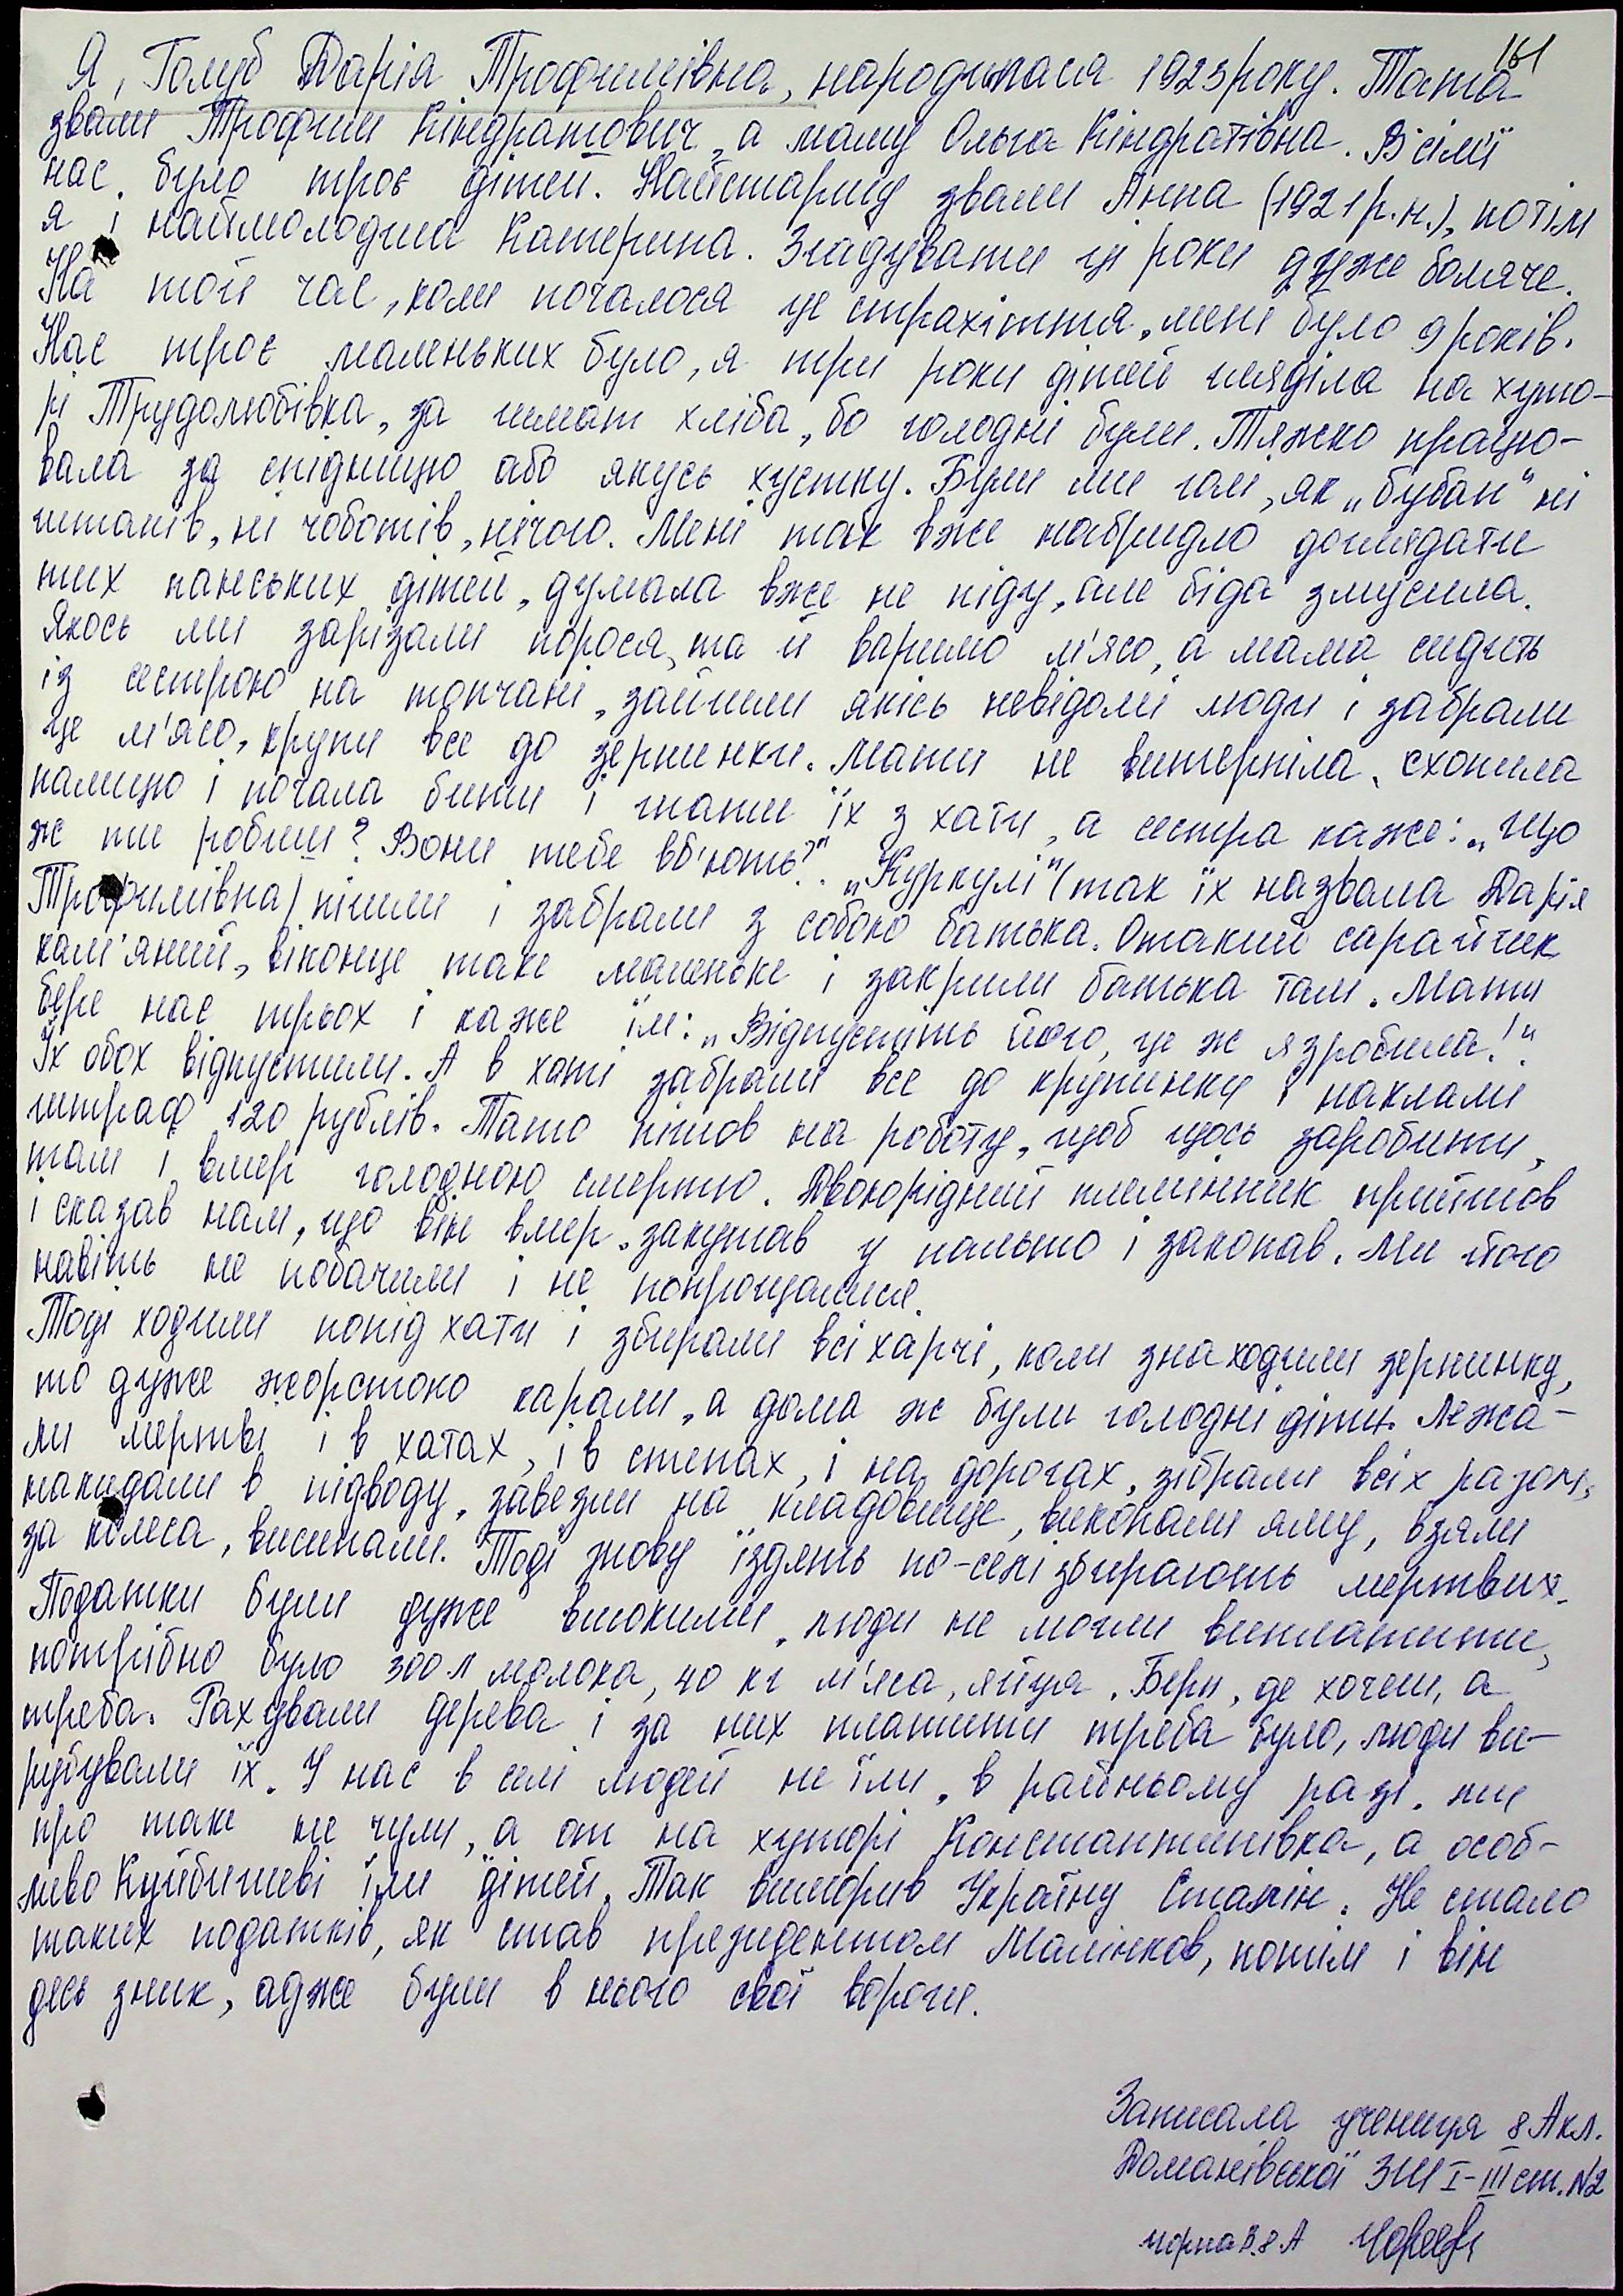 161
Я, Голуб Дарія Трофимівна, народилася 1923 року. Тата
звали Трофим Кіндратович, а маму Ольга Кіндратівна. В сім'ї
нас було троє дітей. Найстаршу звали Анна (1921 р.н.), потім
я і наймолодша Катерина. Згадувати ці роки дуже боляче.
На той час, коли почалося це страхіття, мені було 9 років.
Нас троє маленьких було, я три роки дітей гляділа на хуто-
рі Трудолюбівка, за шмат хліба, бо голодні були. Тяжко працю-
вала за спідницю або якусь хустку. Були ми голі, як „бубан" ні
штанів, ні чоботів, нічого. Мені так вже набридло доглядати
тих панських дітей, думала вже не піду, але біда змусила.
Якось ми зарізали порося, та й варимо м'ясо, а мама сидить
із сестрою на топчані, зайшли якісь невідомі люди і забрали
це м'ясо, крупи все до зернинки. Мати не витерпіла, схопила
палицю і почала бити і гнати їх з хати, а сестра каже: „Що
ж ти робиш? Вони тебе вб'ють?" „Куркулі" (так їх назвала Дарія
Трофимівна) пішли і забрали з собою батька. Отакий сарайчик
кам'яний, віконце таке маленьке і закрили батька там. Мати
бере нас трьох і каже їм: „Відпустіть його, це ж я зробила!"
Їх обох відпустили. А в хаті забрали все до крупинки і наклали
штраф 120 рублів. Тато пішов на роботу, щоб щось заробити,
там і вмер голодною смертю. Двоюрідний племінник прийшов
і сказав нам, що він вмер, закутав у пальто і закопав. Ми його
навіть не побачили і не попрощалися.
Тоді ходили попід хати і збирали всі харчі, коли знаходили зернинку,
то дуже жорстоко карали, а дома ж були голодні діти. Лежа-
ли мертві і в хатах, і в степах, і на дорогах, зібрали всіх разом,
накидали в підводу, завезли на кладовище, викопали яму, взяли
за колеса, висипали. Тоді знову їздять по-селі збирають мертвих.
Податки були дуже високими, люди не могли виплатити,
потрібно було 300 л молока, 40 кг м'яса, яйця. Бери, де хочеш, а
треба. Рахували дерева і за них платити треба було, люди ви-
рубували їх. У нас в селі людей не їли, в райньому разі, ми
про таке не чули, а от на хуторі Константинівка, а особ-
ливо Куйбишеві їли дітей. Так виморив Україну Сталін. Не стало
таких податків, як став президентом Малінков, потім і він
десь зник, адже були в нього свої вороги.
Записала учениця 8 А кл.
Доманівської ЗШ І-ІІІ ст. №2
Чорна В. 8 А